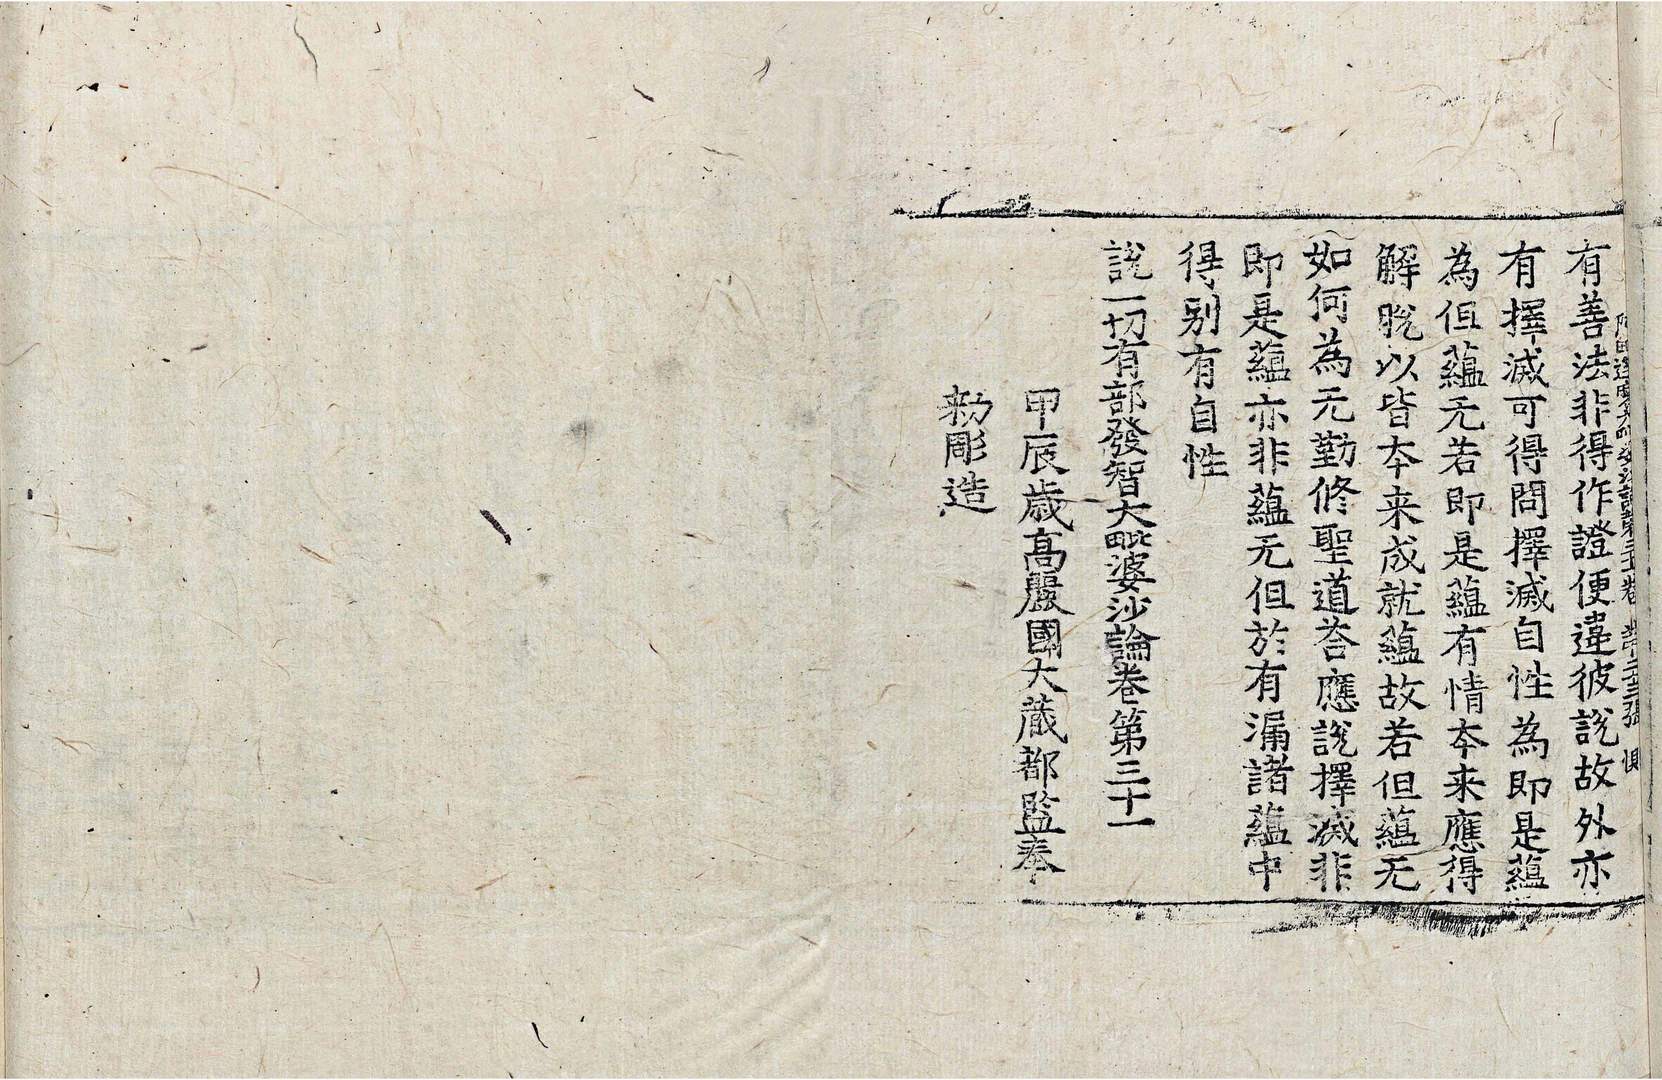 阿毗達磨大毗婆沙論第三十一卷 第二十三張 惻
有善法非得作證便違彼說故外亦
有擇滅可得問擇滅自性為即是蘊
為但蘊无若即是蘊有情夲来應得
解脫以皆夲来成就蘊故若但蘊无
如何為无勤修聖道荅應說擇滅非
即是蘊亦非蘊无但於有漏諸蘊中
得别有自性
說一切有部發智大毗婆沙論卷第三十一
甲辰歲高麗國大藏都監奉
勑彫造